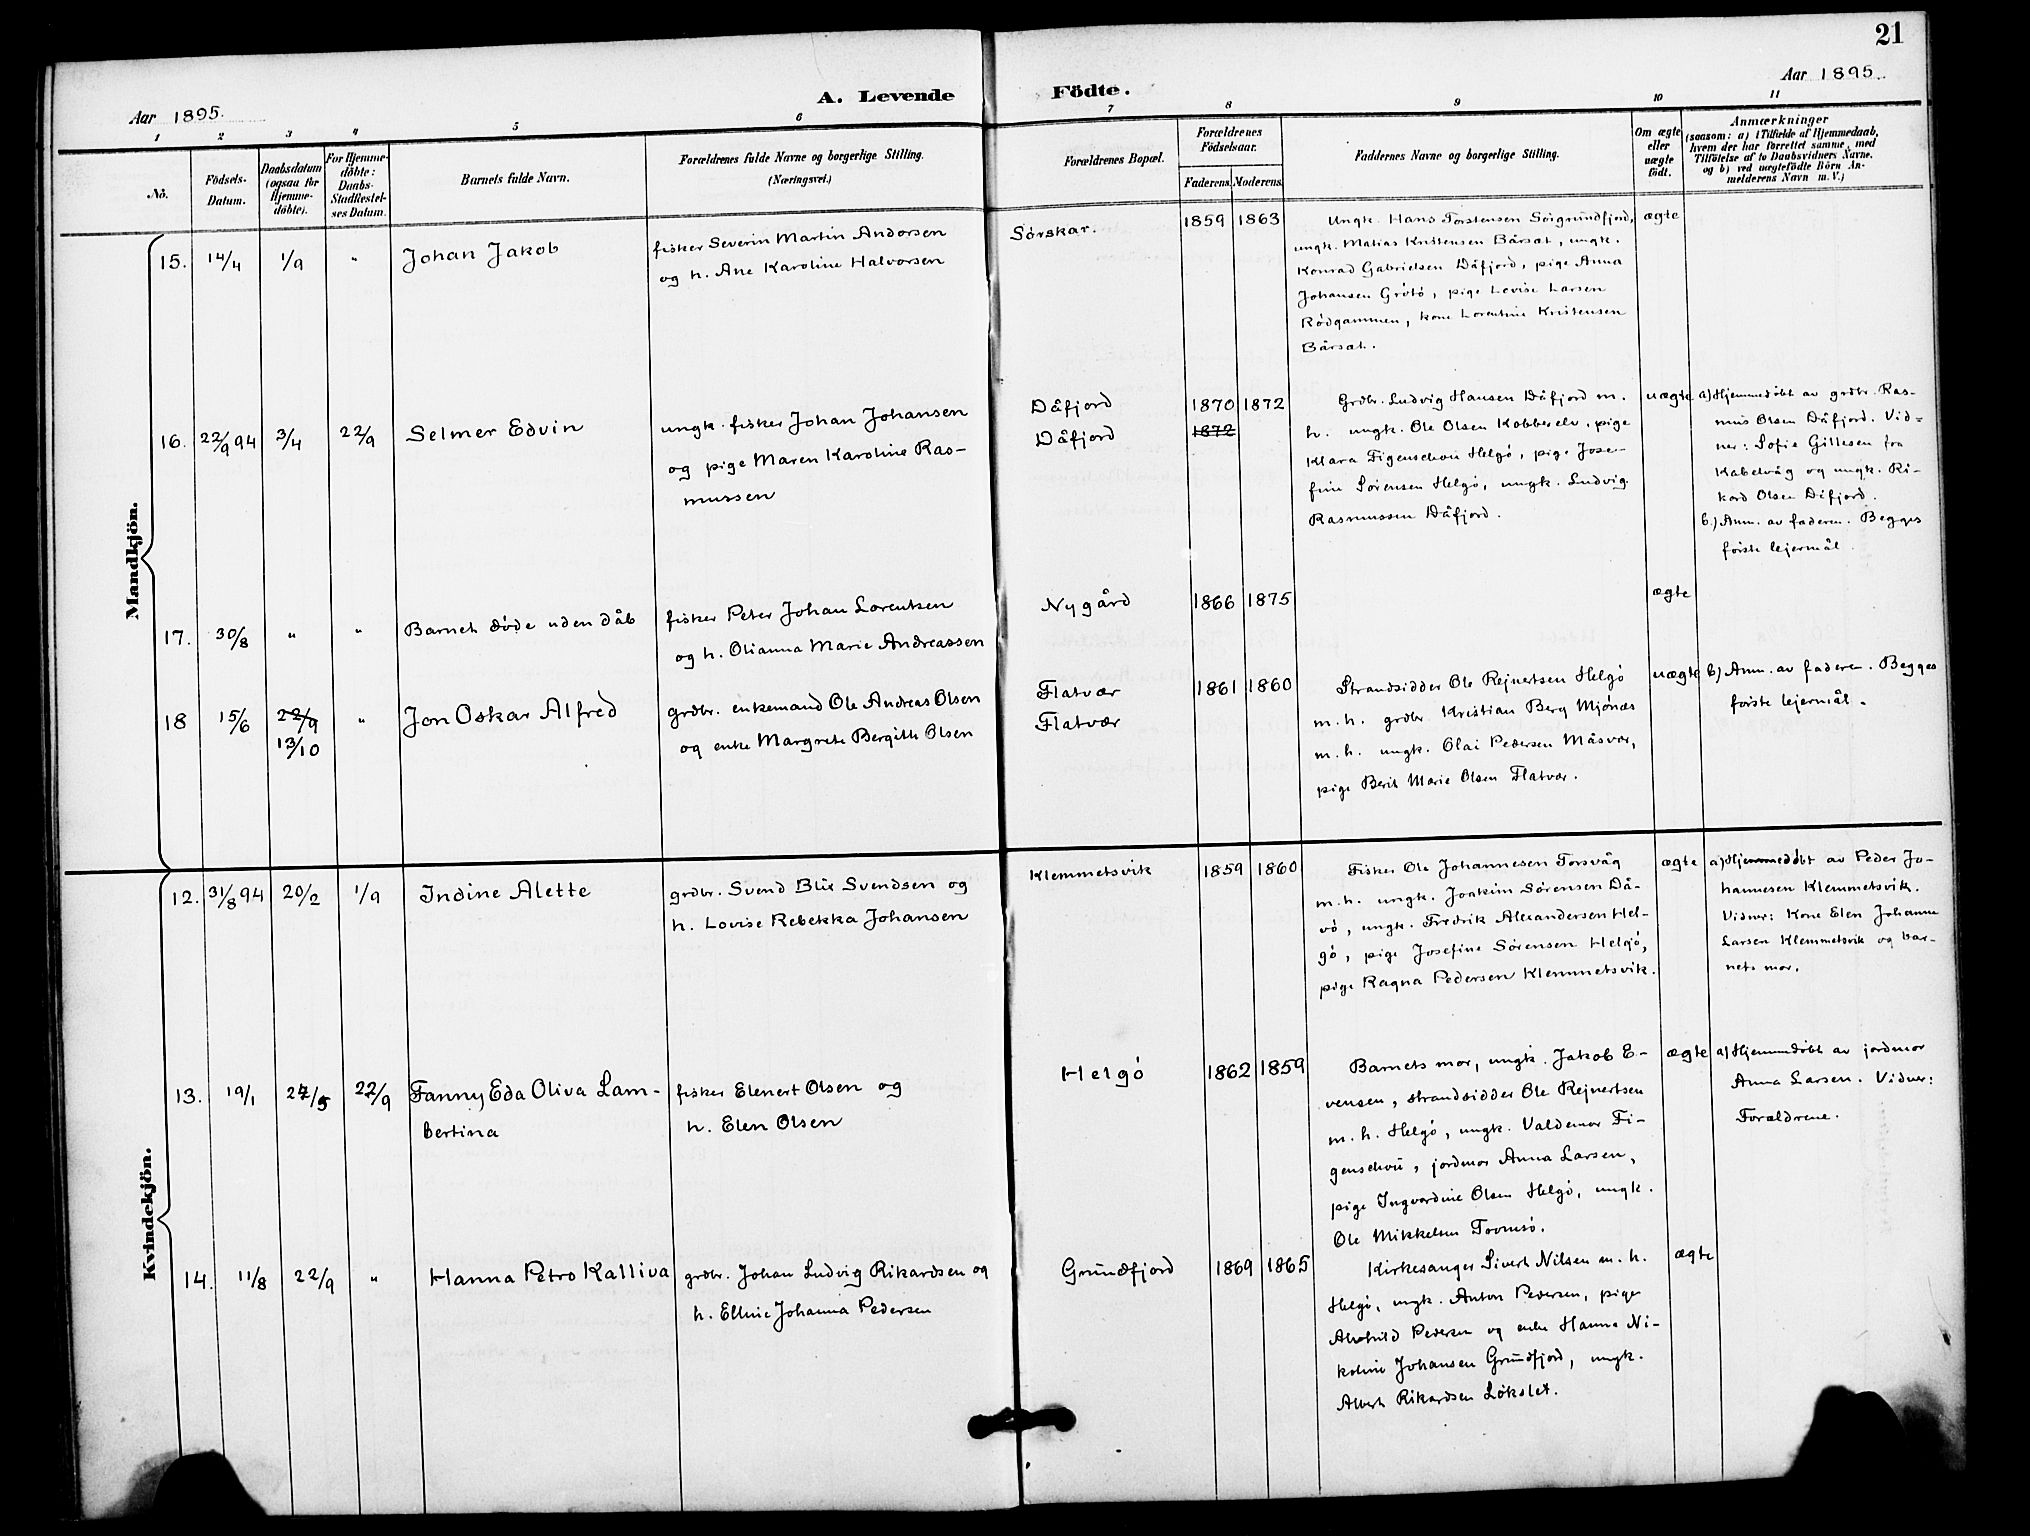 21
Aar 1895.
A. Levende Födte.
Aar 1895.
1 2 3 4 5 6 7 8 9 10 11
No.
Födsels-
Datum.
Daabsdatum
(ogsaa for
Hjemme-
döbte).
For Hjemme-
döbte:
Daabs-
Stadfestel-
ses Datum.
Barnets fulde Navn.
Forældrenes fulde Navne og borgerlige Stilling.
(Næringsvei.)
Forældrenes Bopæl.
Forældrenes
Födselsaar.
Faderens. Moderens.
Faddernes Navne og borgerlige Stilling.
Om ægte
eller
uægte
födt.
Anmærkninger
(saasom: a) i Tilfælde af Hjemmedaab,
hvem der har forrettet samme, med
Tilföielse af to Daabsvidners Navne.
og b) ved uægtefödte Börn An-
melderens Navn m. V.)
Mandkjön.
15. 14/4 1/9 " Johan Jakob
fisker Severin Martin Andorsen
og h. Ane Karoline Halvorsen
Sörskar.
1859 1863
Ungk. Hans Torstensen Sörgrundfjord,
ungk. Matias Kristensen Bårset, ungk.
Konrad Gabrielsen Dåfjord, pige Anna
Johansen Grötö, pige Lovise Larsen
Rödgammen, kone Lorentine Kristensen
Bårset.
ægte
16. 22/9 94 3/4 22/9 Selmer Edvin
ungk. fisker Johan Johansen
og pige Maren Karoline Ras-
mussen
Dåfjord
Dåfjord
1870 1872
1872
Grdbr. Ludvig Hansen Dåfjord m.
h. ungk. Ole Olsen Kobberelv, pige
Klara Figenschou Helgö, pige Jose-
fine Sörensen Helgö, ungk. Ludvig
Rasmussen Dåfjord.
uægte
a) Hjemmedöbt av grdbr. Ras-
mus Olsen Dåfjord. Vid-
ner: Sofie Gillesen fra
Kabelvåg og ungk. Ri-
kard Olsen Dåfjord.
b.) Anm. av faderen. Begges
förste lejermål.
17. 30/8 " " Barnet döde uden dåb
fisker Peter Johan Lorentsen
og h. Olianna Marie Andreassen
Nygård
1866 1875
ægte
18 15/6 22/9 " Jon Oskar Alfred
13/10
grdbr. enkemand Ole Andreas Olsen
og enke Margrete Bergitte Olsen
Flatvær
Flatvær
1861 1860
Strandsidder Ole Rejnertsen Helgö
m. h. grdbr Kristian Berg Mjönes
m. h. ungk. Olai Pedersen Måsvær,
pige Berit Marie Olsen Flatvær.
uægte
b) Anm. av faderen. Begges
förste lejermål.
Kvindekjön.
12. 31/8 94 20/2 1/9 Indine Alette
grdbr. Svend Blix Svendsen og
h. Lovise Rebekka Johansen
Klemmetsvik
1859 1860
Fisker Ole Johannesen Torsvåg
m. h. ungk. Joakim Sörensen Då-
vö, ungk. Fredrik Alexandersen Hel-
gö, pige Josefine Sörensen Helgö,
pige Ragna Pedersen Klemmetsvik.
ægte
a) Hjemmedöbt av Peder Jo-
hannesen Klemmetsvik.
Vidner: Kone Elen Johanne
Larsen Klemmetsvik og bar-
nets mor.
13. 19/1 27/5 22/9 Fanny Eda Oliva Lam-
bertina
fisker Elenert Olsen og
h. Elen Olsen
Helgö
1862 1859
Barnets mor, ungk. Jakob E-
vensen, strandsidder Ole Rejnertsen
m. h. Helgö, ungk. Valdemar Fi-
genschou, jordmor Anna Larsen,
pige Ingvardine Olsen Helgö, ungk.
Ole Mikkelsen Tromsö.
ægte
a) Hjemmedöbt av jordmor
Anna Larsen. Vidner:
Forældrene.
14. 11/8 22/9 " Hanna Petro Kalliva
grdbr. Johan Ludvig Rikardsen og
h. Elline Johanna Pedersen
Grundfjord
1869 1865
Kirkesanger Sivert Nilsen m. h.
Helgö, ungk. Anton Pedersen, pige
Alvhild Pedersen og enke Hanna Ni-
koline Johansen Grundfjord, ungk.
Albert Rikardsen Lökslet.
ægte